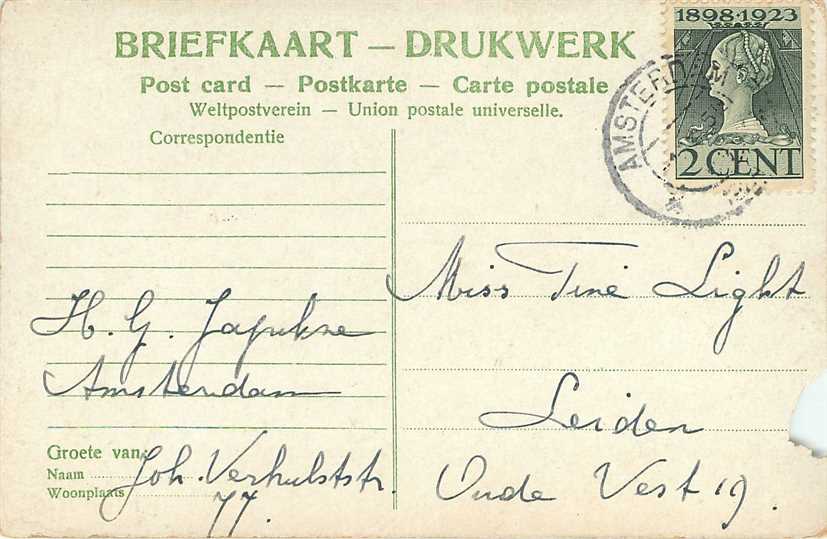 BRIEFKAART — DRUKWERK
Post card — Postkarte — Carte postale
Weltpostverein — Union postale universelle.
Correspondentie
1898·1923
2 CENT
AMSTERDAM
H. G. Japikse
Amsterdam
Groete van:
Naam
Woonplaats
Joh. Verhulststr.
77.
Miss Tine Light
Leiden
Oude Vest 19.